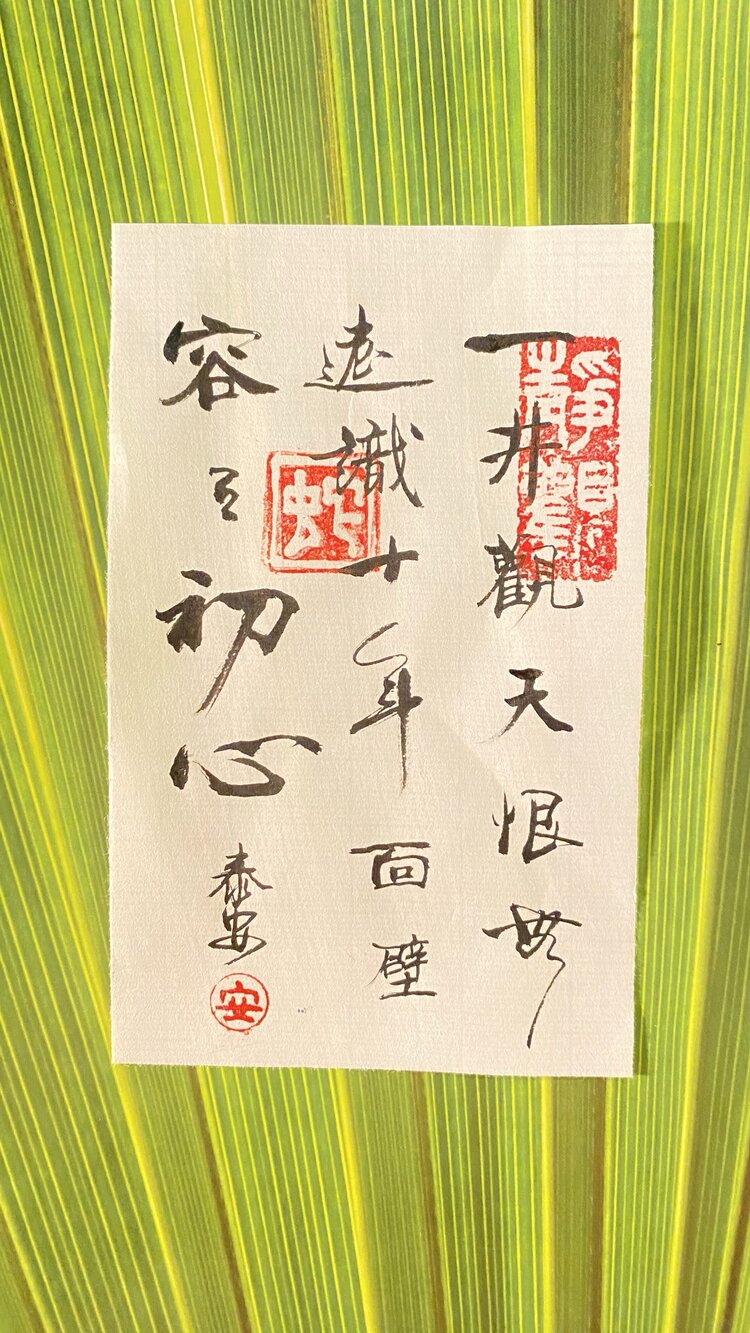 一井觀天恨無
遠識十年面壁
容初心
泰安
安
蛇